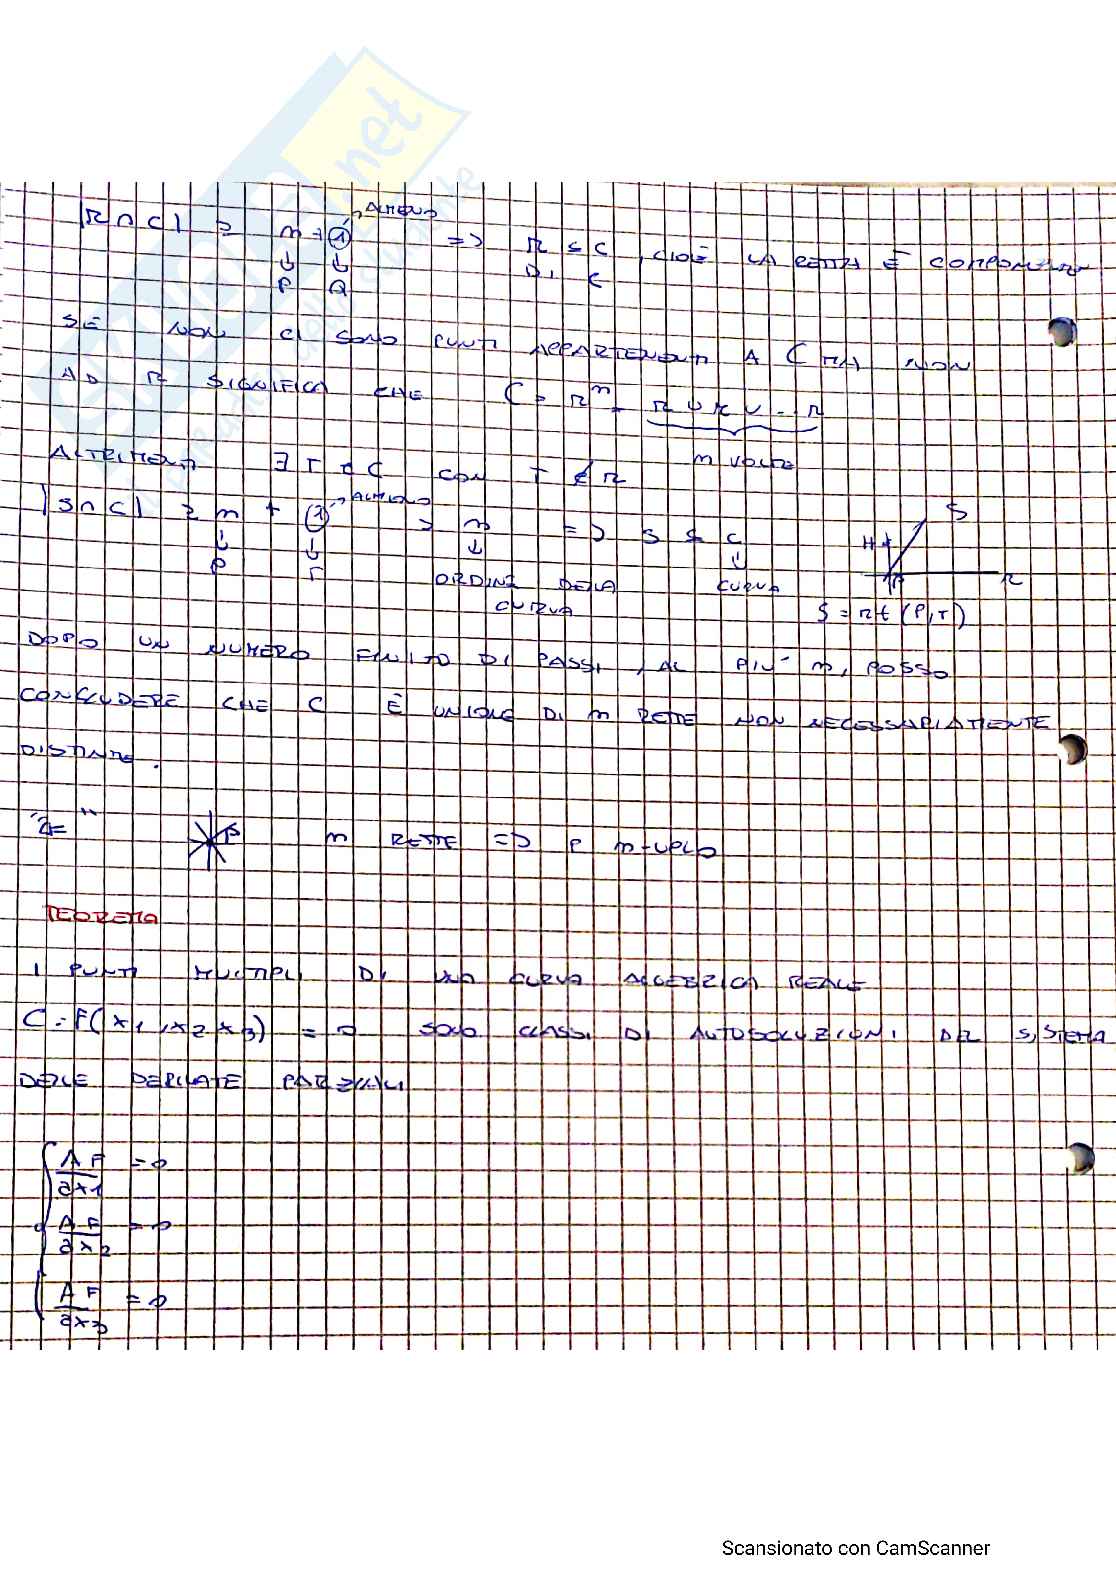 |R∩C| ≥ m + 1 ALMENO => R ⊆ C, CIOÈ LA RETTA È COMPONENTE
↓ ↓ DI C
P Q
SE NON CI SONO PUNTI APPARTENENTI A C MA NON
AD R SIGNIFICA CHE C = R^m = R ∪ R ∪ ... R
m VOLTE
ALTRIMENTI ∃ T ∈ C CON T ∉ R
|S∩C| ≥ m + 1 ALMENO > m => S ⊆ C
↓ ↓ ↓ ↓
P T ORDINE DELLA CURVA
CURVA
S
R
S = rt (P, T)
DOPO UN NUMERO FINITO DI PASSI, AL PIÙ m, POSSO
CONCLUDERE CHE C È UNIONE DI m RETTE NON NECESSARIAMENTE
DISTINTE.
"<=" P m RETTE => P m-UPLO
TEOREMA
I PUNTI MULTIPLI DI UNA CURVA ALGEBRICA REALE
C: F(x1, x2 x3) = 0 SONO CLASSI DI AUTOSOLUZIONI DEL SISTEMA
DELLE DERIVATE PARZIALI
∂F/∂x1 = 0
∂F/∂x2 = 0
∂F/∂x3 = 0
Scansionato con CamScanner